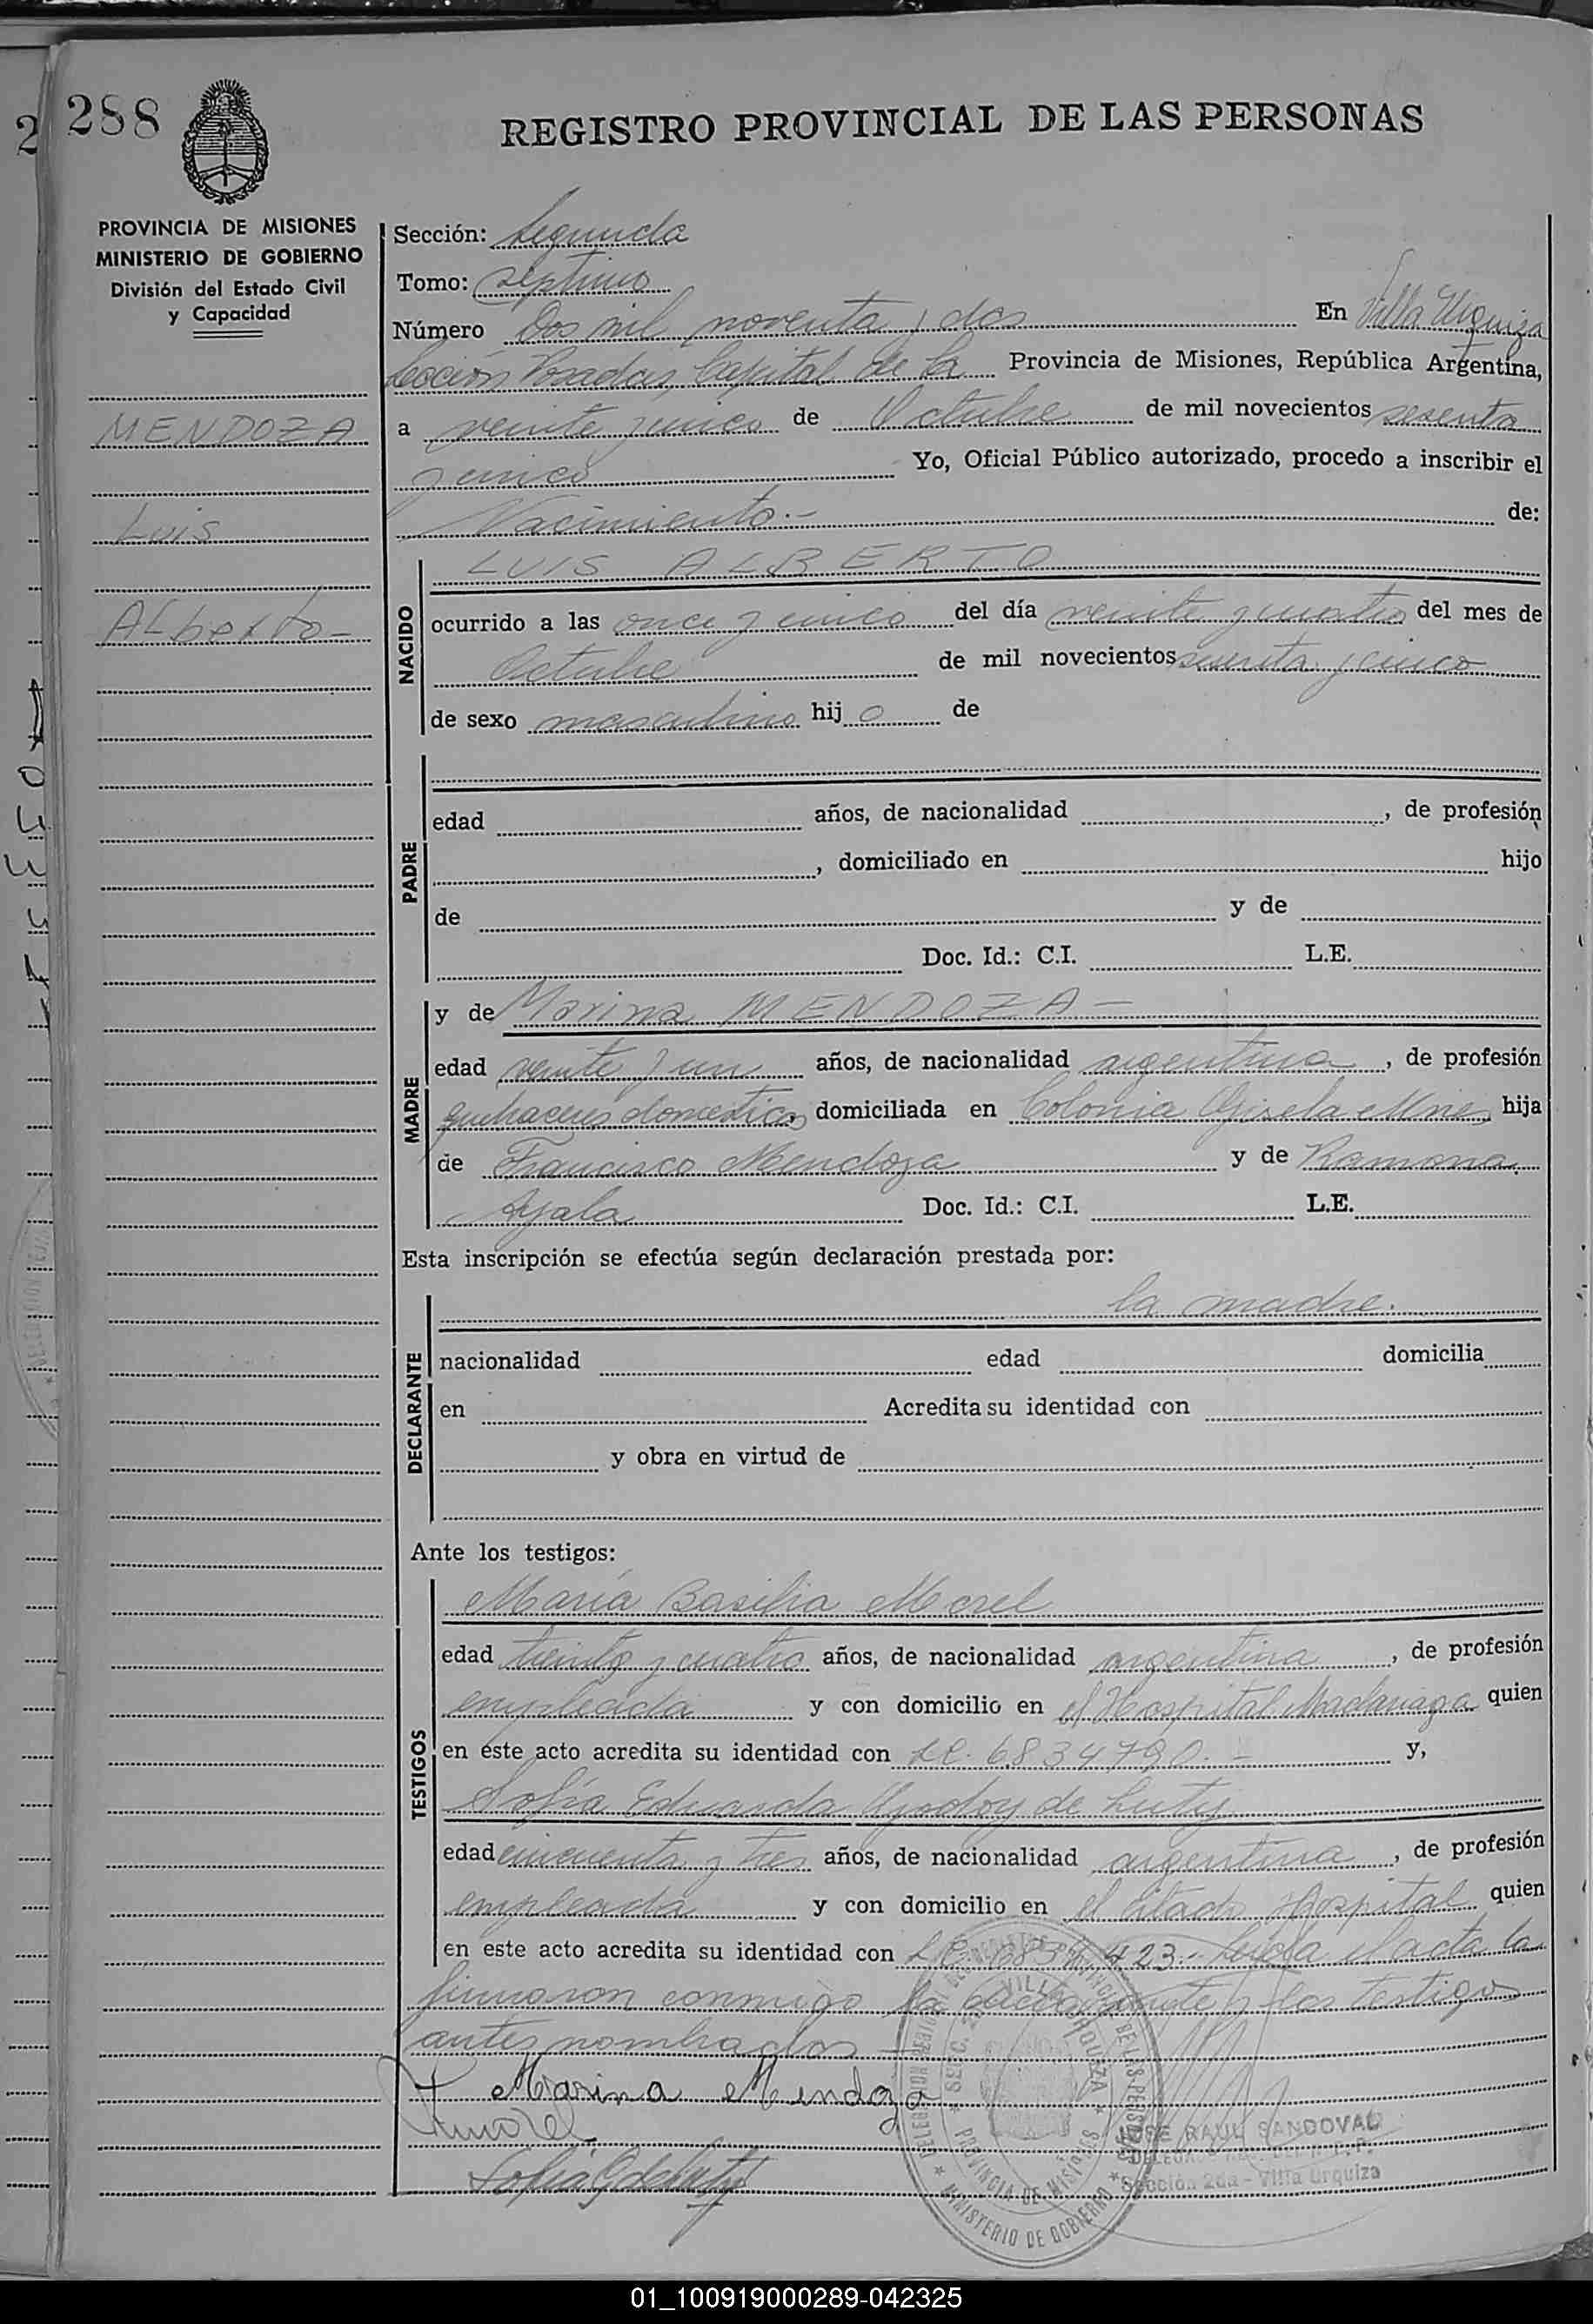 288
REGISTRO PROVINCIAL DE LAS PERSONAS
PROVINCIA DE MISIONES
MINISTERIO DE GOBIERNO
División del Estado Civil
y Capacidad
MENDOZA
Luis
Alberto-
Sección: Segunda
Tomo: séptimo
Número Dos mil noventa y dos En Villa Urquiza
Sección Posadas, Capital de la Provincia de Misiones, República Argentina,
a veinte y cinco de Octubre de mil novecientos sesenta
y cinco Yo, Oficial Público autorizado, procedo a inscribir el
Nacimiento.- de:
NACIDO
LUIS ALBERTO
ocurrido a las once y cinco del día veinte y cuatro del mes de
Octubre de mil novecientos sesenta y cinco
de sexo masculino hij o de
PADRE
edad años, de nacionalidad , de profesión
, domiciliado en hijo
de y de
Doc. Id.: C.I. L.E.
MADRE
y de Marina MENDOZA -
edad veinte y un años, de nacionalidad argentina , de profesión
quehaceres domesticos domiciliada en Colonia Gisela Mnes hija
de Francisco Mendoza y de Ramona
Ayala Doc. Id.: C.I. L.E.
Esta inscripción se efectúa según declaración prestada por:
DECLARANTE
la madre.
nacionalidad edad domicilia
en Acredita su identidad con
y obra en virtud de
Ante los testigos:
TESTIGOS
María Basilia Morel
edad treinta y cuatro años, de nacionalidad argentina , de profesión
empleada y con domicilio en el Hospital Madariaga quien
en este acto acredita su identidad con LC. 6834790.- y,
Sofía Eduarda Godoy de Luty
edad cincuenta y tres años, de nacionalidad argentina , de profesión
empleada y con domicilio en el citado Hospital quien
en este acto acredita su identidad con 423.- Leida el acta la
firmaron conmigo la declarante y los testigos
antes nombrados
Marina Mendoza
Morel
Sofía G de Luty
JOSE RAUL SANDOVAL
Sección 2da - Villa Urquiza
MINISTERIO DE GOBIERNO
PROVINCIA DE MISIONES
01_100919000289-042325